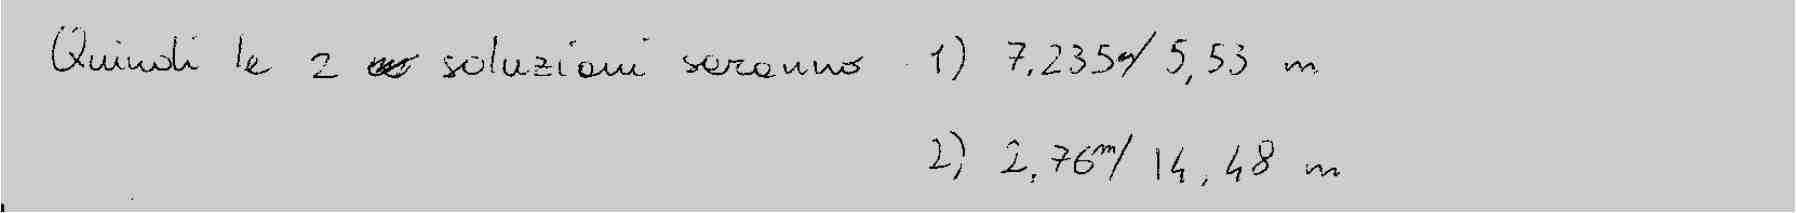 Quindi le 2 soluzioni saranno 1) 7.235m/ 5,53 m
2) 2,76m/ 14,48 m